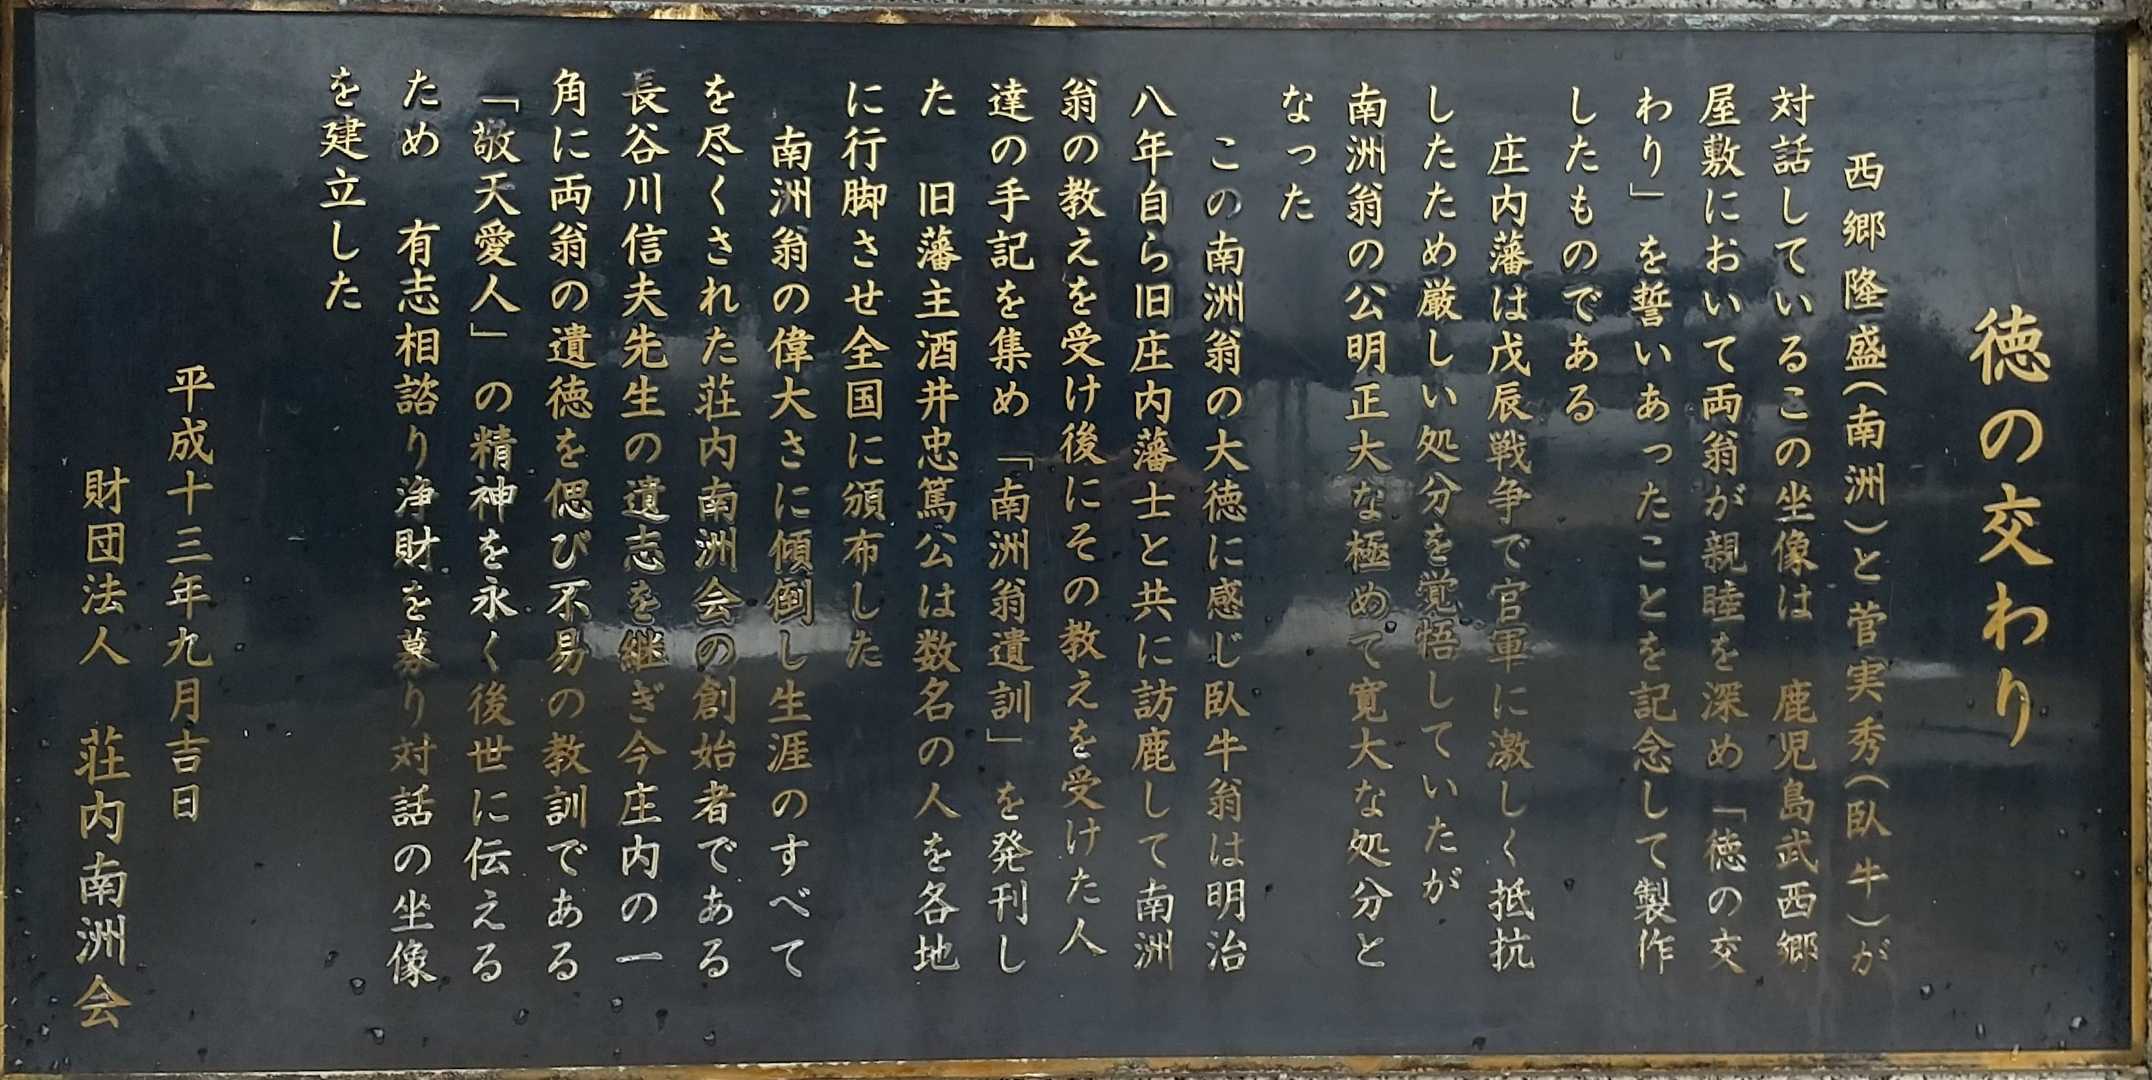 徳の交わり
西郷隆盛(南洲)と菅実秀(臥牛)が
対話しているこの坐像は 鹿児島武西郷
屋敷において両翁が親睦を深め「徳の交
わり」を誓いあったことを記念して製作
したものである
庄内藩は戊辰戦争で官軍に激しく抵抗
したため厳しい処分を覚悟していたが
南洲翁の公明正大な極めて寛大な処分と
なった
この南洲翁の大徳に感じ臥牛翁は明治
八年自ら旧庄内藩士と共に訪鹿して南洲
翁の教えを受け後にその教えを受けた人
達の手記を集め「南洲翁遺訓」を発刊し
た 旧藩主酒井忠篤公は数名の人を各地
に行脚させ全国に頒布した
南洲翁の偉大さに傾倒し生涯のすべて
を尽くされた荘内南洲会の創始者である
長谷川信夫先生の遺志を継ぎ今庄内の一
角に両翁の遺徳を偲び不易の教訓である
「敬天愛人」の精神を永く後世に伝える
ため 有志相諮り浄財を募り対話の坐像
を建立した
平成十三年九月吉日
財団法人 荘内南洲会